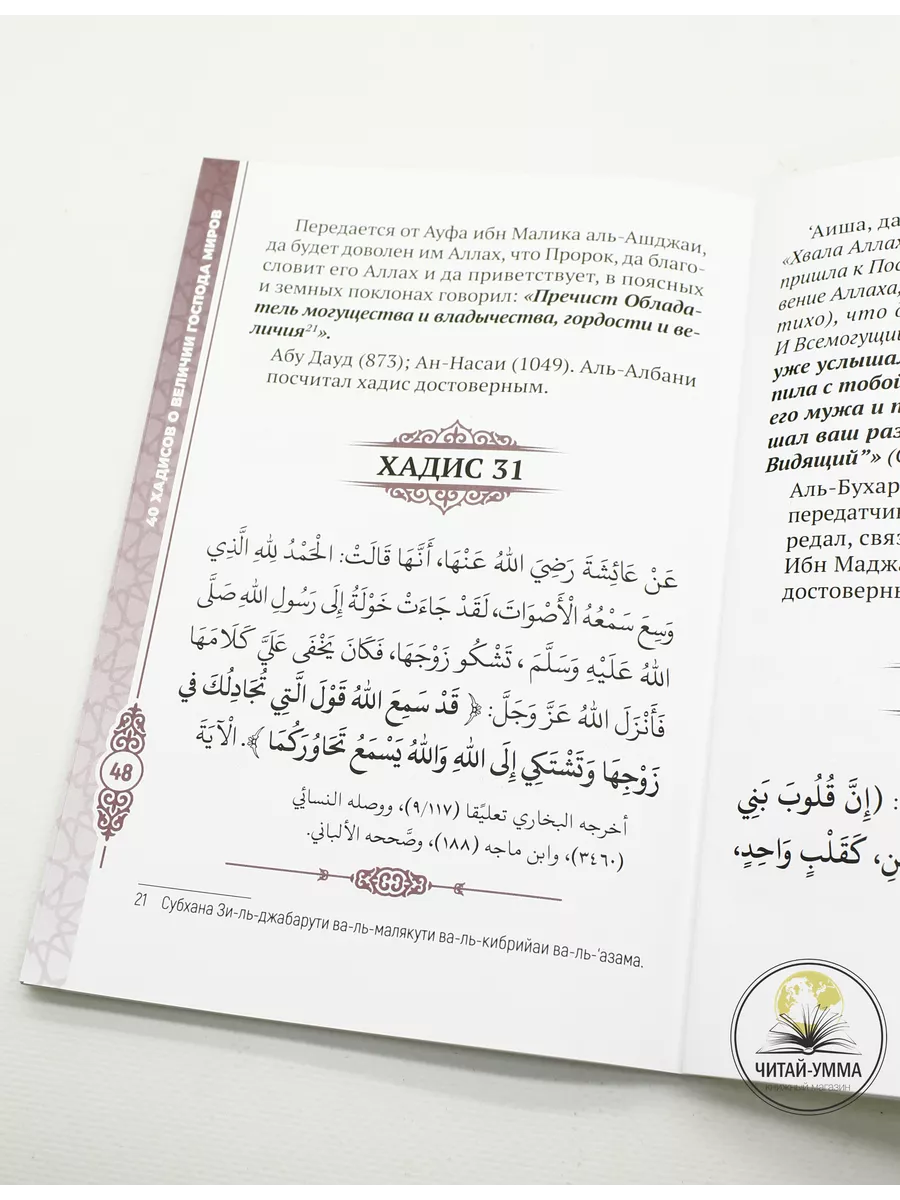 40 ХАДИСОВ О ВЕЛИЧИИ ГОСПОДА МИРОВ
Передается от Ауфа ибн Малика аль-Ашджаи,
да будет доволен им Аллах, что Пророк, да благо-
словит его Аллах и да приветствует, в поясных
и земных поклонах говорил: «Пречист Облада-
тель могущества и владычества, гордости и ве-
личия²¹».
Абу Дауд (873); Ан-Насаи (1049). Аль-Албани
посчитал хадис достоверным.
ХАДИС 31
عَنْ عَائِشَةَ رَضِيَ اللهُ عَنْهَا، أَنَّهَا قَالَتْ: الْحَمْدُ لِلهِ الَّذِي
وَسِعَ سَمْعُهُ الْأَصْوَاتَ، لَقَدْ جَاءَتْ خَوْلَةُ إِلَى رَسُولِ اللهِ صَلَّى
اللهُ عَلَيْهِ وَسَلَّمَ، تَشْكُو زَوْجَهَا، فَكَانَ يَخْفَى عَلَيَّ كَلَامَهَا
فَأَنْزَلَ اللهُ عَزَّ وَجَلَّ: ﴿ قَدْ سَمِعَ اللهُ قَوْلَ الَّتِي تُجَادِلُكَ فِي
زَوْجِهَا وَتَشْتَكِي إِلَى اللهِ وَاللهُ يَسْمَعُ تَحَاوُرَكُمَا ﴾. الْآيَةَ
أخرجه البخاري تعليقًا (٩/١١٧)، ووصله النسائي
(٣٤٦٠)، وابن ماجه (١٨٨)، وصَّححه الألباني.
21 Субхана Зи-ль-джабарути ва-ль-малякути ва-ль-кибрийаи ва-ль-‘азама.
48
‘Аиша, да
«Хвала Аллах
пришла к Пос
вение Аллаха,
тихо), что
И Всемогущий
уже услышал
пила с тобой
его мужа и п
шал ваш раз
Видящий”» (
Аль-Бухар
передатчи
редал, связ
Ибн Маджа
достоверны
: (إِنَّ قُلُوبَ بَنِي
نِ، كَقَلْبٍ وَاحِدٍ،
ЧИТАЙ-УММА
КНИЖНЫЙ МАГАЗИН